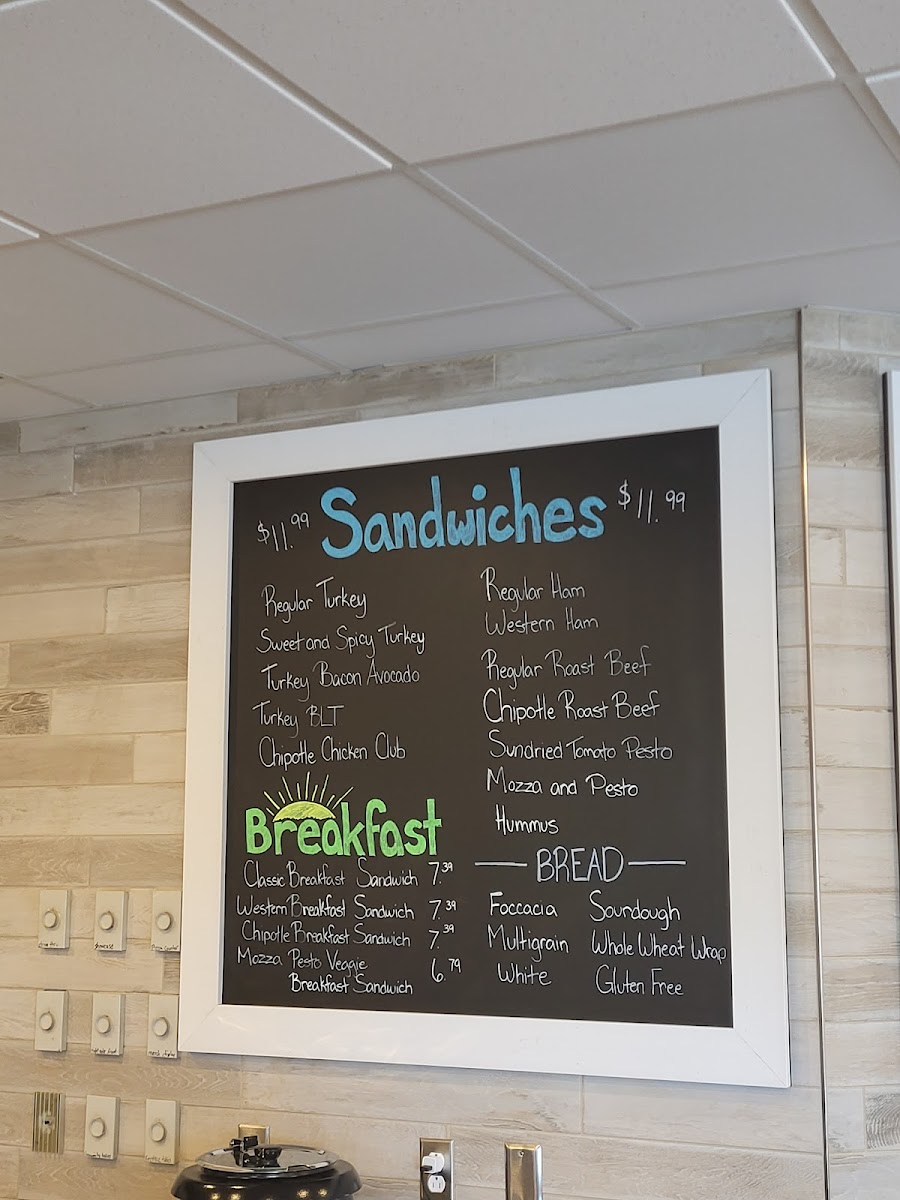 $11.99 Sandwiches $11.99
Regular Turkey
Sweet and Spicy Turkey
Turkey Bacon Avocado
Turkey BLT
Chipotle Chicken Club
Regular Ham
Western Ham
Regular Roast Beef
Chipotle Roast Beef
Sundried Tomato Pesto
Mozza and Pesto
Hummus
Breakfast
Classic Breakfast Sandwich 7.39
Western Breakfast Sandwich 7.39
Chipotle Breakfast Sandwich 7.39
Mozza Pesto Veggie
Breakfast Sandwich 6.79
BREAD
Foccacia
Multigrain
White
Sourdough
Whole Wheat Wrap
Gluten Free
showcase